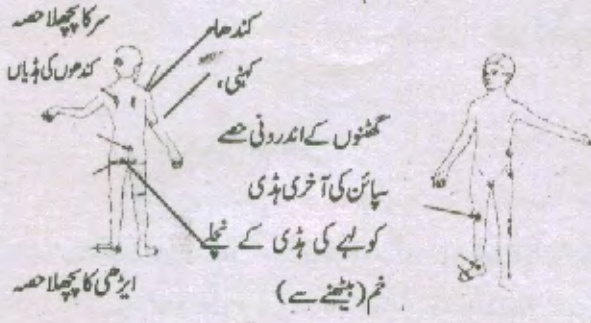 سر کا پچھلا حصہ
کندھا
کندھوں کی ہڈیاں
کہنی،
گھٹنوں کے اندرونی حصے
سپائن کی آخری ہڈی
کولہے کی ہڈی کے نچلے
خم (بیٹھنے سے)
ایڑھی کا پچھلا حصہ